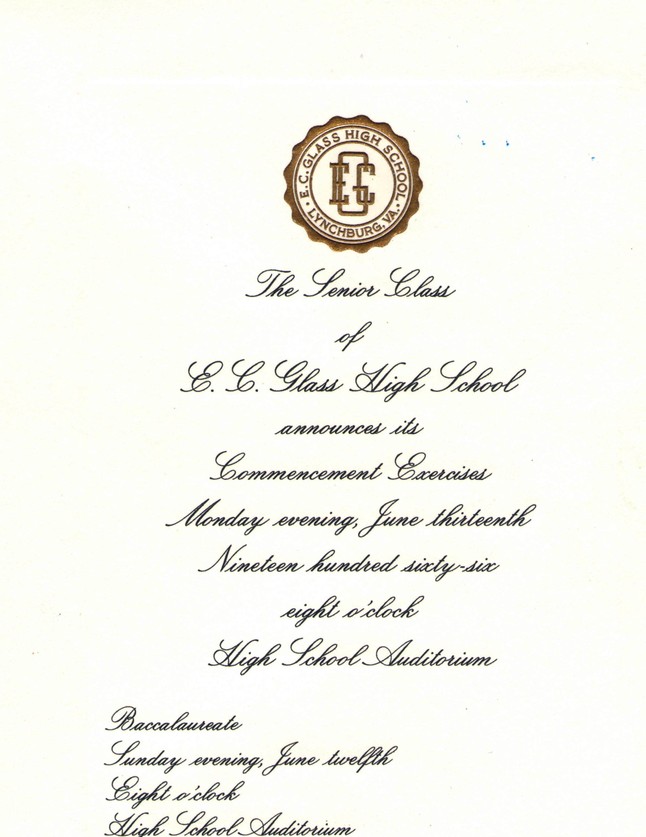 E.C. GLASS HIGH SCHOOL
EGC
LYNCHBURG, VA.
The Senior Class
of
E. C. Glass High School
announces its
Commencement Exercises
Monday evening, June thirteenth
Nineteen hundred sixty-six
eight o'clock
High School Auditorium
Baccalaureate
Sunday evening, June twelfth
Eight o'clock
High School Auditorium